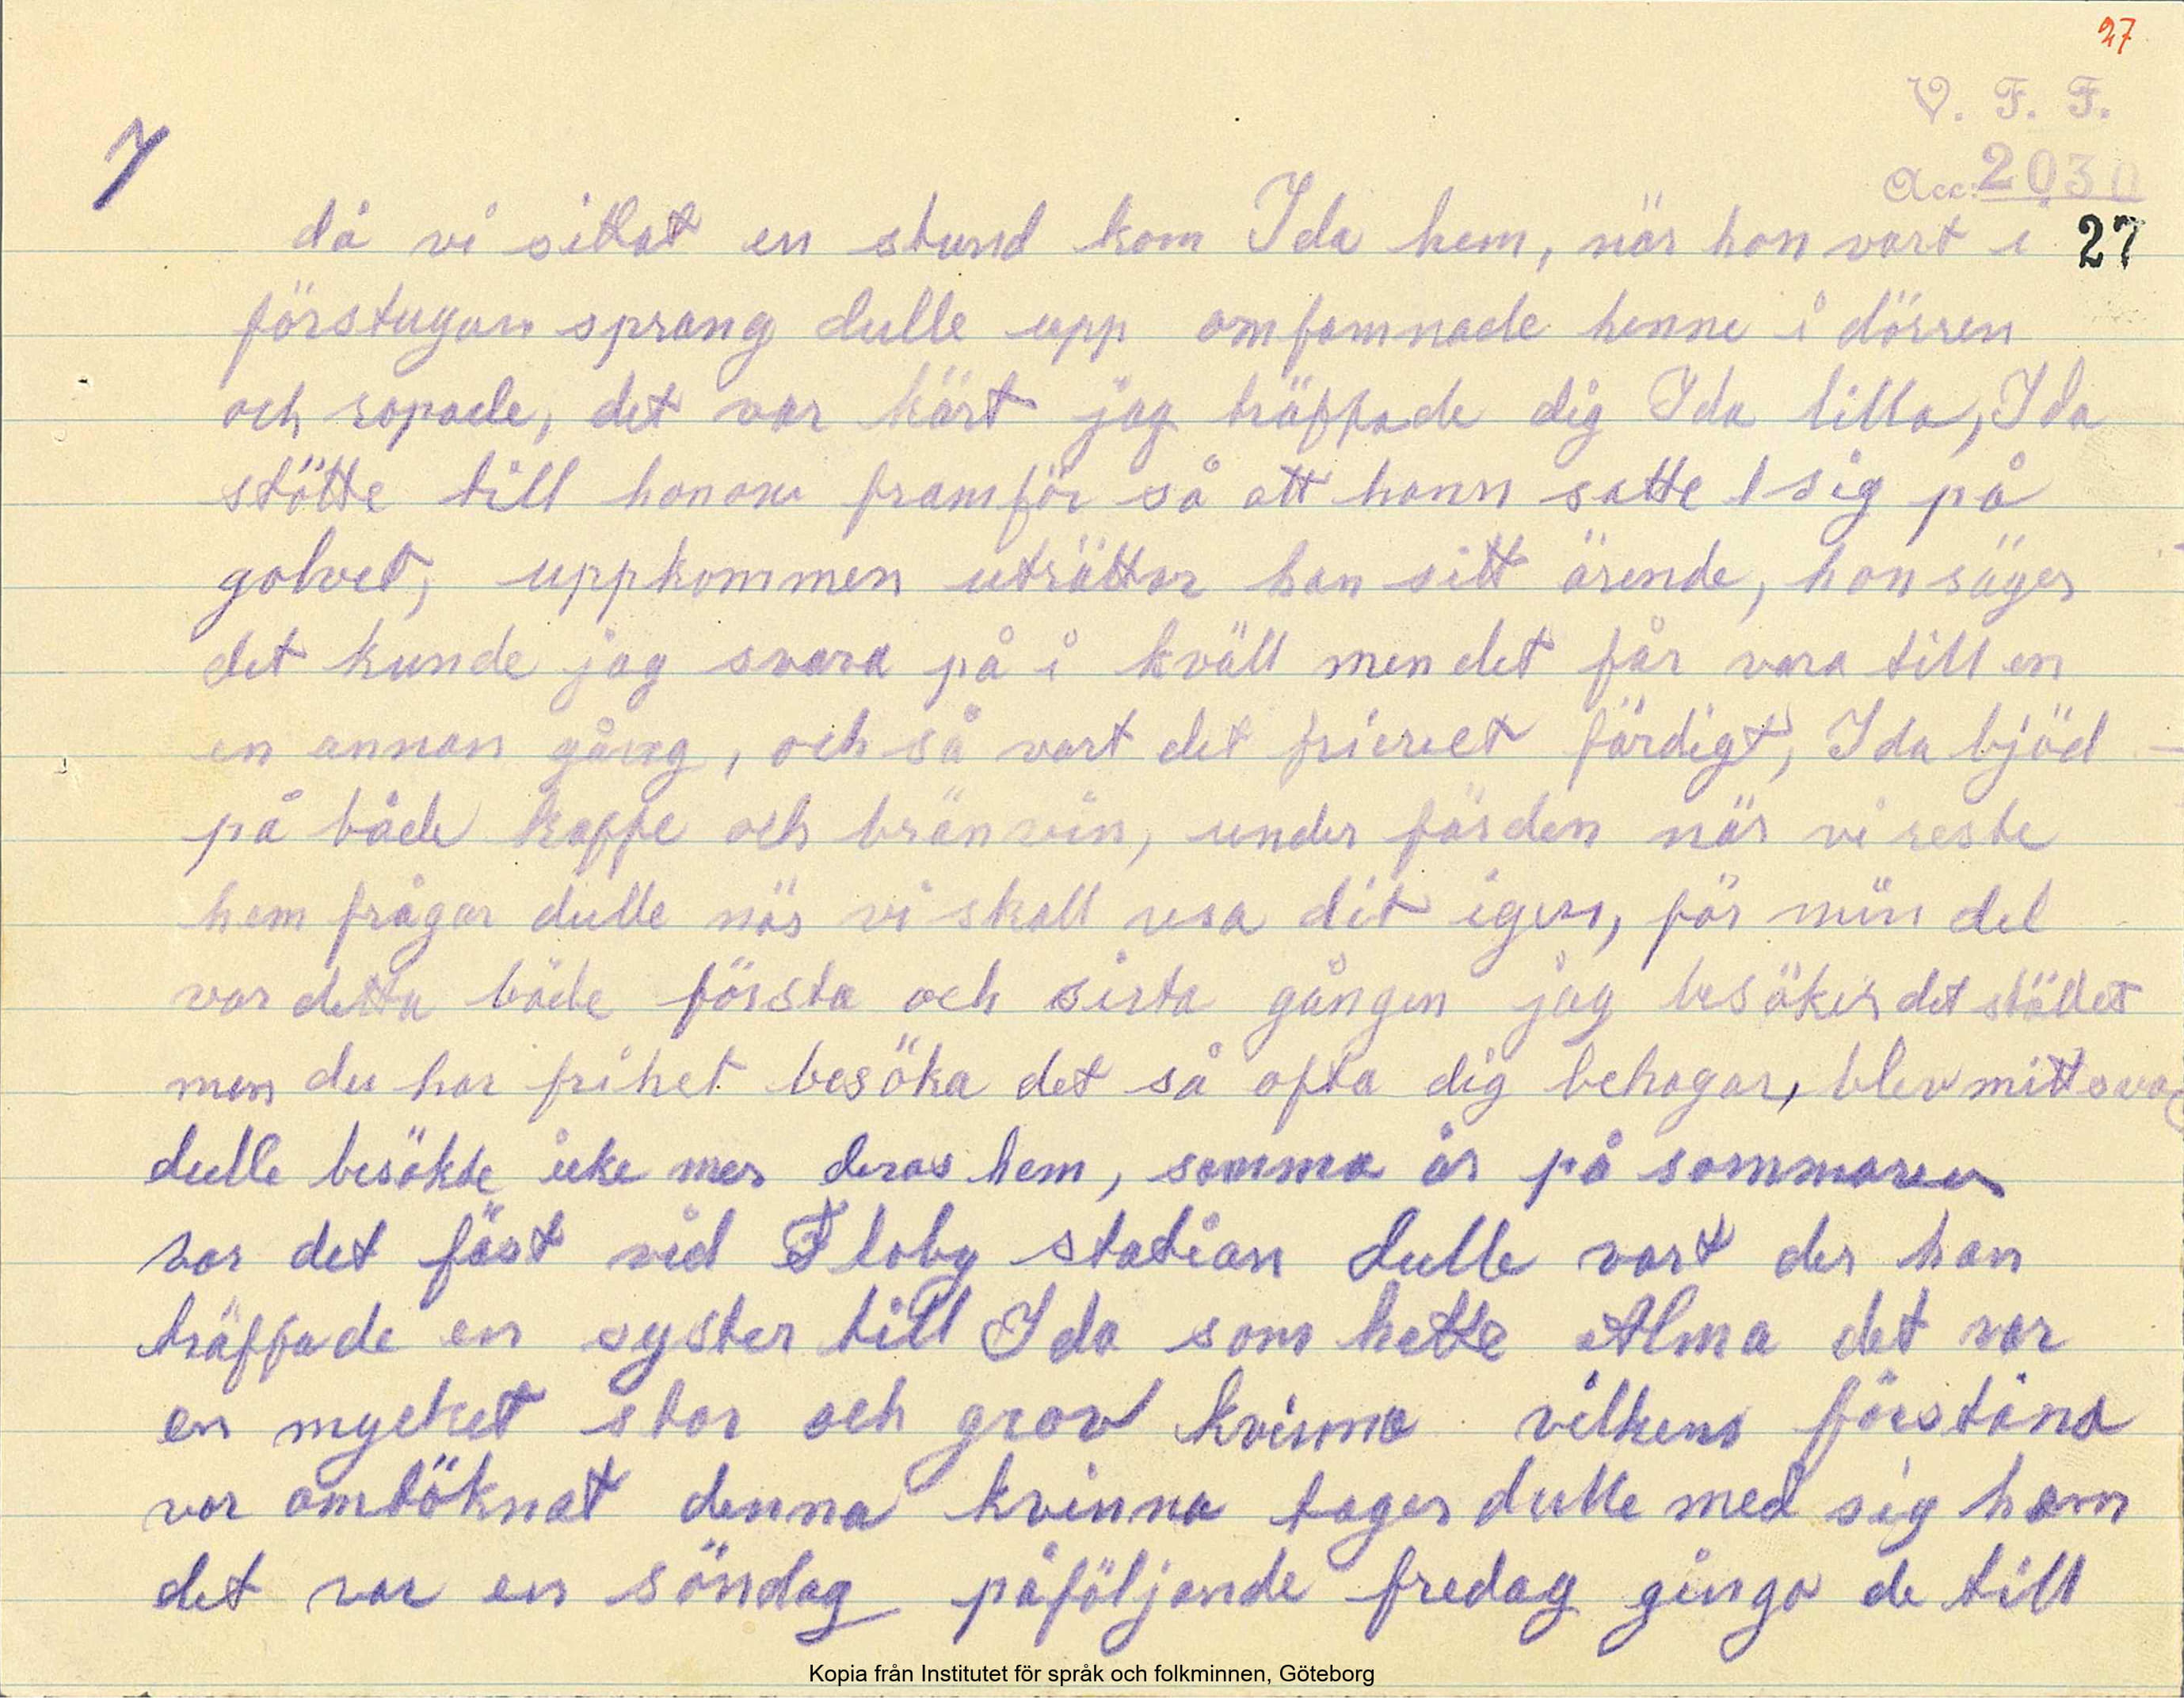 27
V. F. F.
Acc. 2030
7
då vi sittat en stund kom Ida hem, när hon vart i 27
förstugan sprang dulle upp omfamnade henne i dörren
och ropade, det var kärt jag träffade dig Ida lilla, Ida
stötte till honom framför så att hann satte sig på
golvet, uppkommen uträttar han sitt ärende, hon säger
det kunde jag svara på i kväll men det får vara till en
en annan gång, och så vart det frieriet färdigt, Ida bjöd
på både kaffe och bränvin, under färden när vi reste
hem frågar dulle när vi skall resa dit igen, för min del
var detta både första och sista gången jag besöker det stället
men du har frihet besöka det så ofta dig behagar, blev mitt svar
dulle besökte icke mer deras hem, samma år på sommaren
var det fäst vid Floby station dulle vart der han
träffade en syster till Ida som hette Alma det var
en mycket stor och grov kvinna vilkens förstånd
var omtöknat denna kvinna tager dulle med sig hem
det var en söndag påföljande fredag gingo de till
Kopia från Institutet för språk och folkminnen, Göteborg